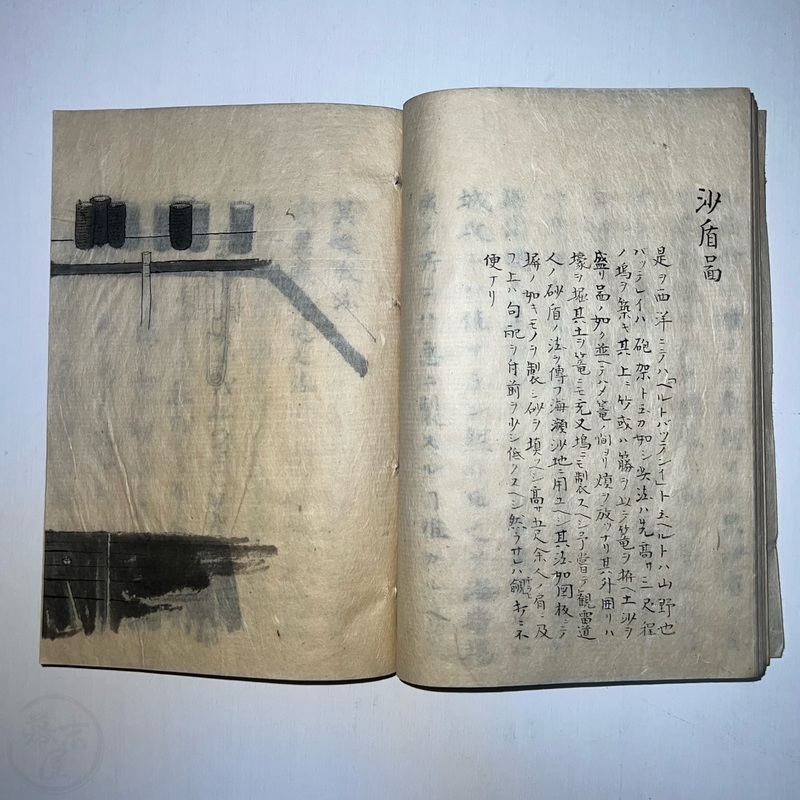 沙盾啚
是ヲ西洋ニテハ「ヘルトバッテレイ」ト云ヘルトハ山野也
バッテレイハ砲架ト云カ如シ其法ハ先高サ二尺程
ノ塢ヲ築キ其上ニ竹或ハ籐ヲ以テ篭ヲ拵ヘ土沙ヲ
盛リ啚ノ如ク並ヘテハメ篭ノ間ヨリ熕ヲ放ツナリ其外囲リハ
壕ヲ掘其土ヲ篭ニモ充又塢ニモ製スヘシ予曽テ觀雷道
人ノ砂盾ノ法ヲ傳フ海瀕沙地ニ用ユヘシ其法如図板ニテ
塀ノ如キモノヲ製シ砂ヲ填ヘシ高サ五尺余人ノ肩ニ及
フ上ハ勾配ヲ付前ヲ少シ低クスヘシ然ラサレハ覦キニ不
便ナリ
幕末屋